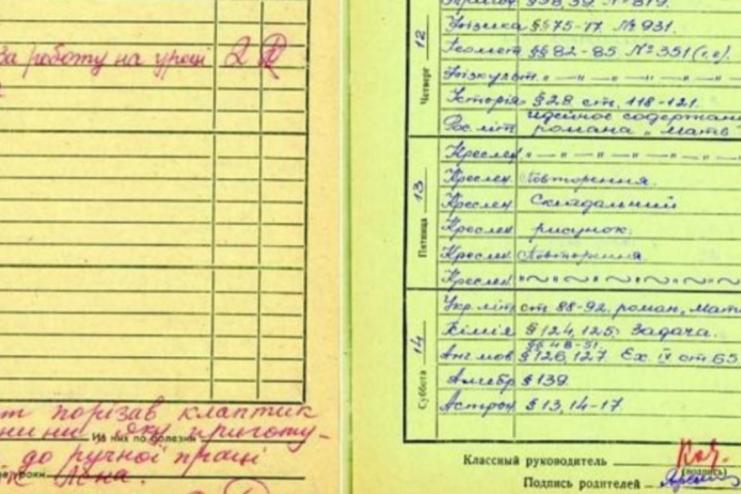 За роботу на уроці 2
порізав клаптик
Из них по болезни
яку пригото-
до ручної праці
12
Четверг
№ 819.
Фізика §§ 75-77. № 931.
Геомет §§ 82-85 № 351 (
Фізкульт. " — " — " — "
Історія § 28 ст. 118-121.
Рос. літ идейное содержан
романа „Мать"
13
Пятница
Креслен " — " — " — "
Креслен Повторення.
Креслен Складальний
Креслен рисунок.
Креслен Повторення.
Креслен
14
Суббота
Укр. літ ст 88-92. роман „Мат
Хімія § 124, 125. Задача.
§§ 48-51.
Анг мов § 126, 127. Ex. IV ст 65
Алгебр § 139.
Астрон § 13, 14-17.
Классный руководитель
(подпись)
Подпись родителей